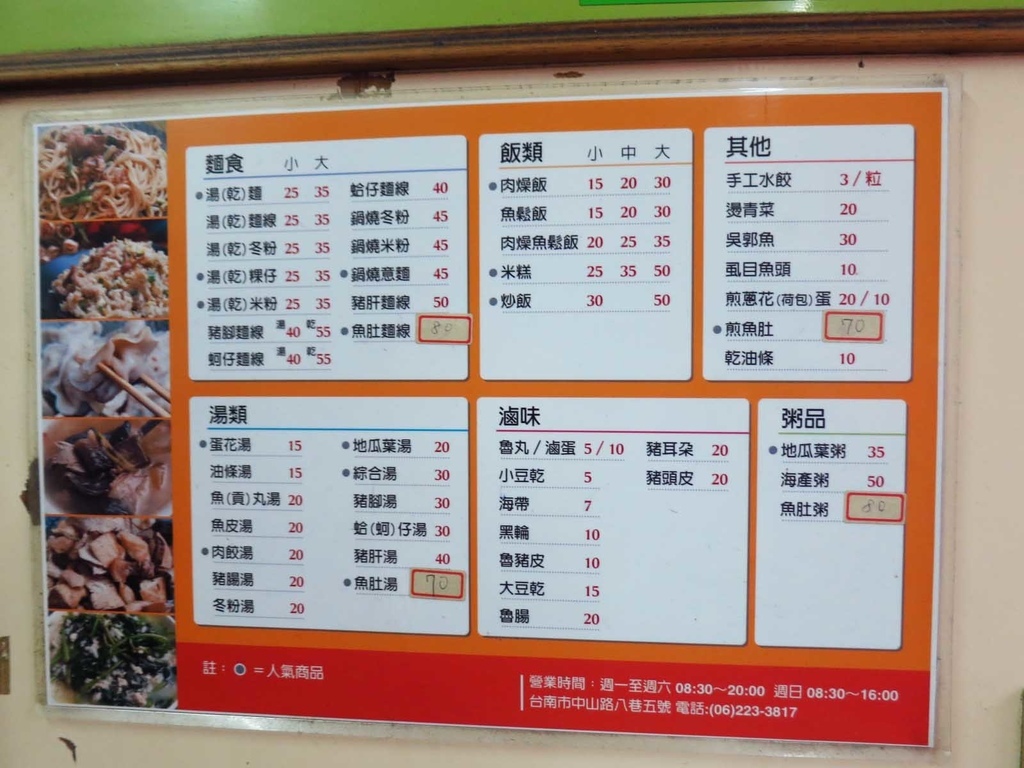 麵食 小 大
湯(乾)麵 25 35
湯(乾)麵線 25 35
湯(乾)冬粉 25 35
湯(乾)粿仔 25 35
湯(乾)米粉 25 35
豬腳麵線 湯40 乾55
蚵仔麵線 湯40 乾55
蛤仔麵線 40
鍋燒冬粉 45
鍋燒米粉 45
鍋燒意麵 45
豬肝麵線 50
魚肚麵線 80
飯類 小 中 大
肉燥飯 15 20 30
魚鬆飯 15 20 30
肉燥魚鬆飯 20 25 35
米糕 25 35 50
炒飯 30 50
其他
手工水餃 3/粒
燙青菜 20
吳郭魚 30
虱目魚頭 10
煎蔥花(荷包)蛋 20/10
煎魚肚 70
乾油條 10
湯類
蛋花湯 15
油條湯 15
魚(貢)丸湯 20
魚皮湯 20
肉餃湯 20
豬腸湯 20
冬粉湯 20
地瓜葉湯 20
綜合湯 30
豬腳湯 30
蛤(蚵)仔湯 30
豬肝湯 40
魚肚湯 70
滷味
魯丸/滷蛋 5/10
小豆乾 5
海帶 7
黑輪 10
魯豬皮 10
大豆乾 15
魯腸 20
豬耳朵 20
豬頭皮 20
粥品
地瓜葉粥 35
海產粥 50
魚肚粥 80
註：● =人氣商品
營業時間：週一至週六 08:30～20:00 週日 08:30～16:00
台南市中山路八巷五號 電話:(06)223-3817